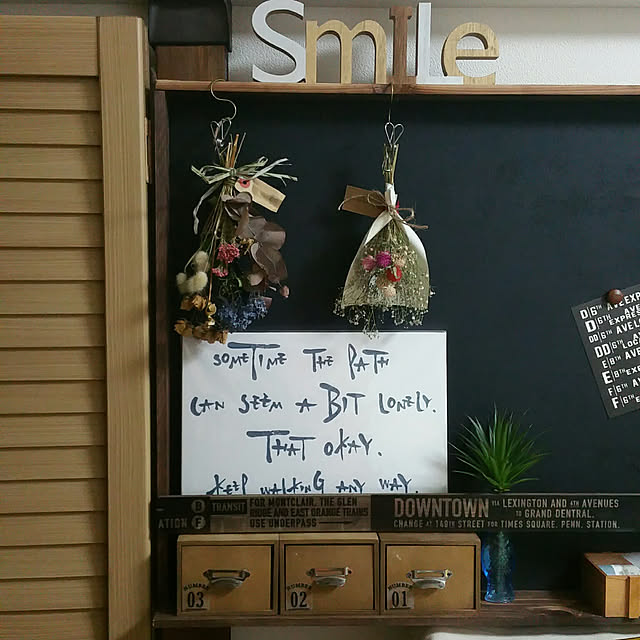 SmiLe
SOMETIME THE PATH
CAN SEEM A BIT LONELY.
THAT OKAY.
KEEP WALKING ANY WAY.
D TRANSIT FOR MONTCLAIR, THE GLEN
RIDGE AND EAST ORANGE TRAINS
ATION F USE UNDERPASS
DOWNTOWN VIA LEXINGTON AND 4TH AVENUES
TO GRAND CENTRAL.
CHANGE AT 149TH STREET FOR TIMES SQUARE. PENN. STATION.
NUMBER 03
NUMBER 02
NUMBER 01
D 6TH AVE EXP
D 6TH AVE
EXPRE
DD 6TH AVE
DD LOCA
E 8TH AVE
E 8TH EXP
F 6TH AVE
F 6TH EX